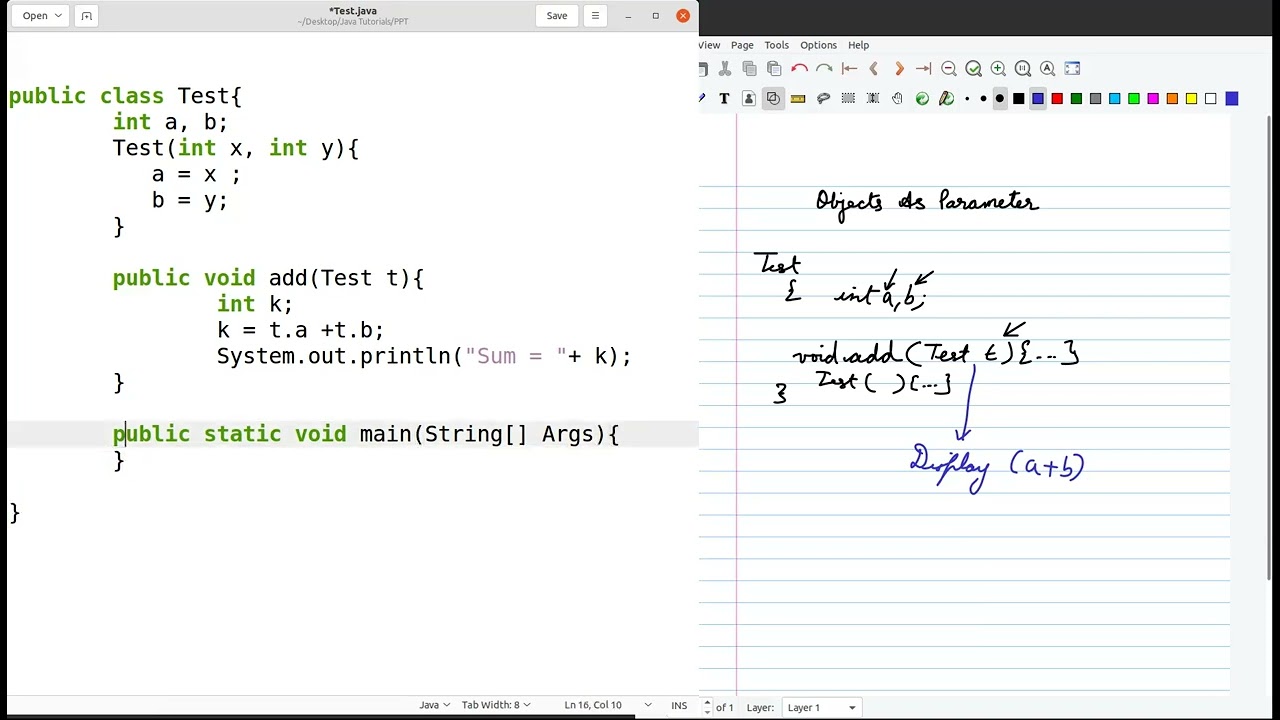 Open
*Test.java
~/Desktop/Java Tutorials/PPT
Save
public class Test{
int a, b;
Test(int x, int y){
a = x ;
b = y;
}
public void add(Test t){
int k;
k = t.a +t.b;
System.out.println("Sum = "+ k);
}
public static void main(String[] Args){
}
}
Java
Tab Width: 8
Ln 16, Col 10
INS
View Page Tools Options Help
Objects As Parameter
Test
{ int a,b;
void add(Test t){...}
Test( ){...}
}
Display (a+b)
of 1
Layer:
Layer 1